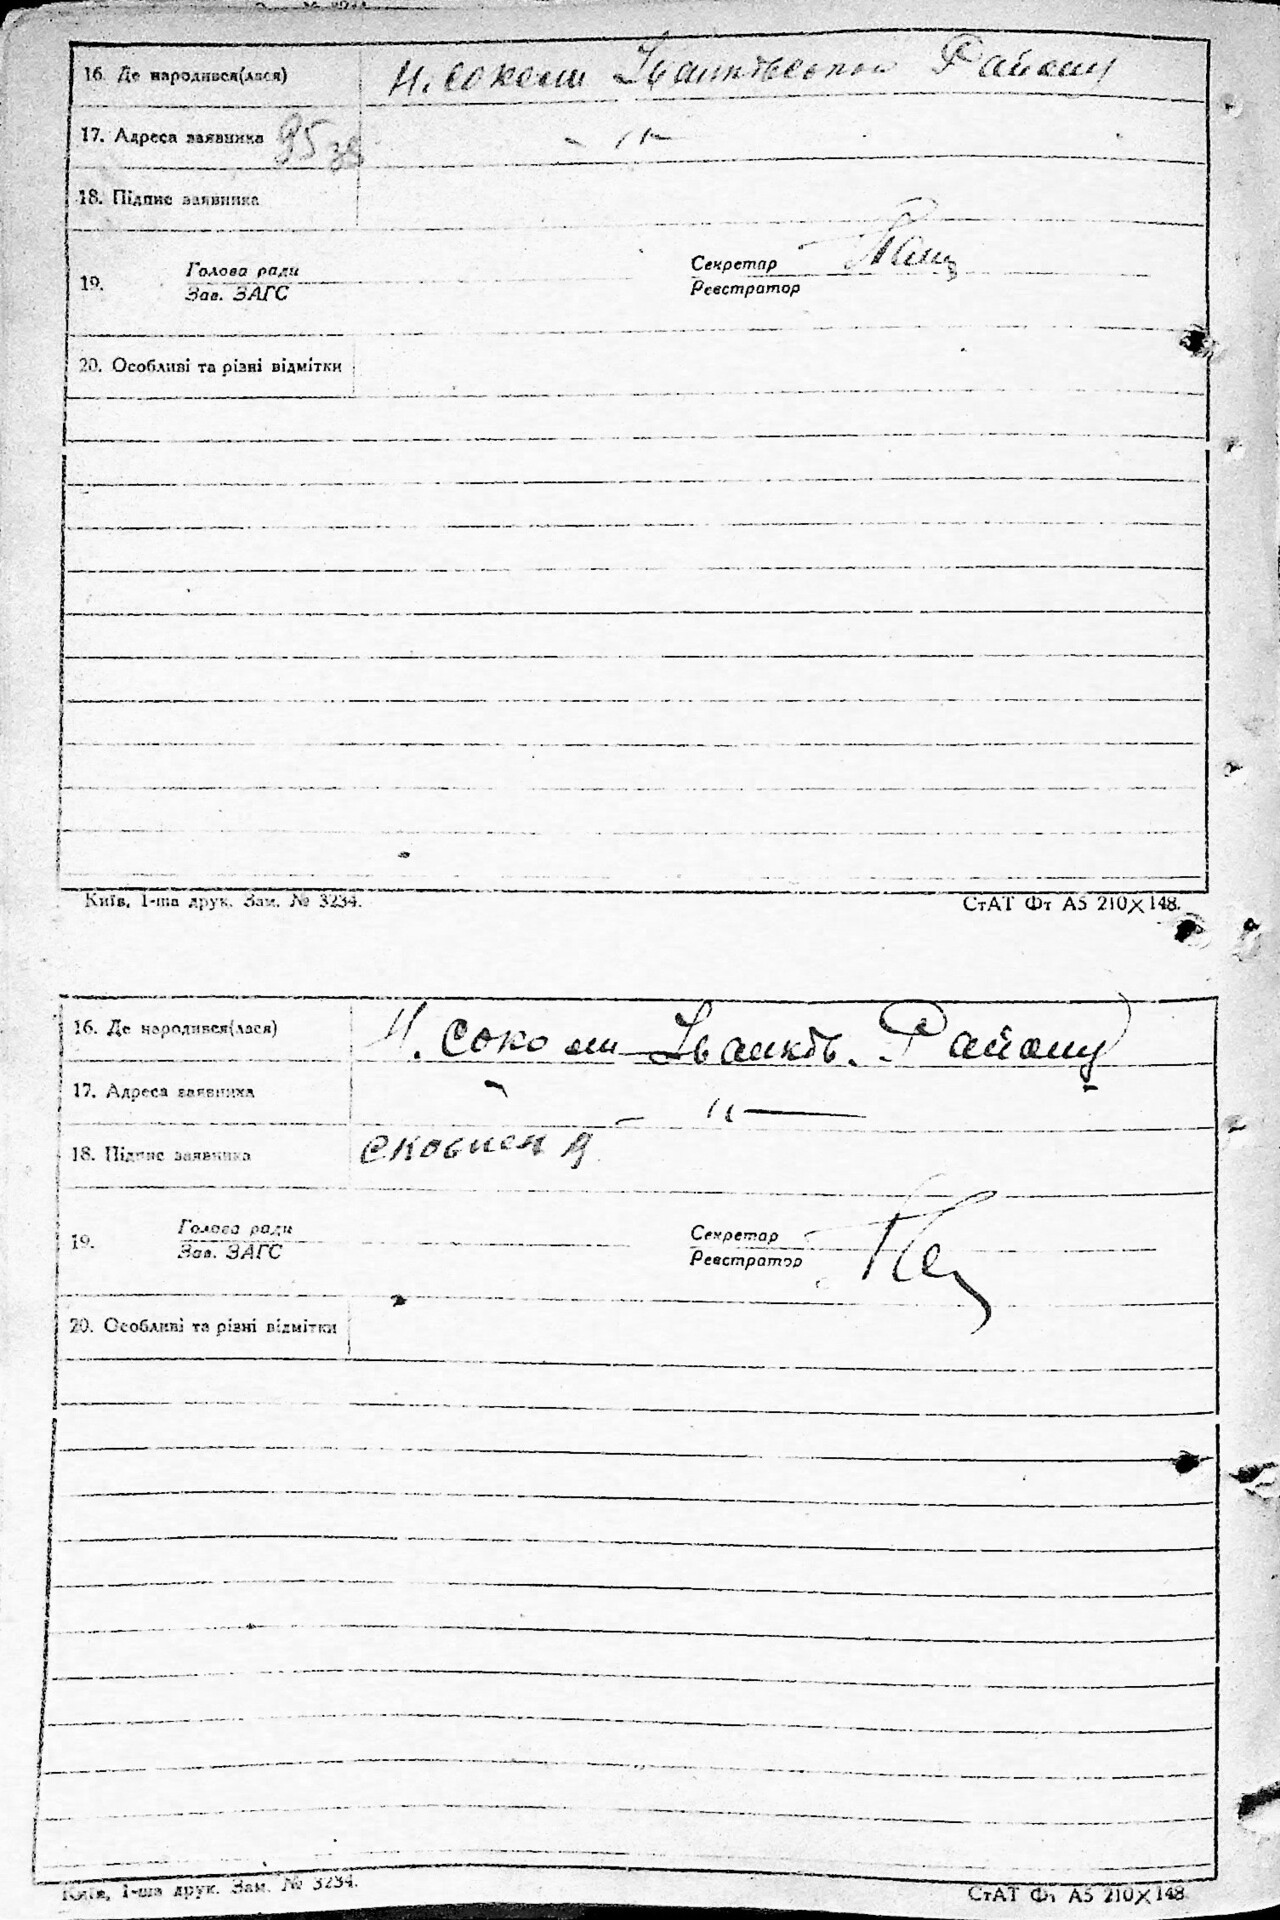 16. Де народився(лася) Н. Соколи Іванківського Району
17. Адреса заявника 95 зв — 〃 —
18. Підпис заявника
19. Голова ради Секретар
Зав. ЗАГС Реєстратор
20. Особливі та різні відмітки
Київ, 1-ша друк. Зам. № 3234. СтАТ Фт А5 210×148.
16. Де народився(лася) Н. Соколи Іванків. Району
17. Адреса заявника — 〃 —
18. Підпис заявника
19. Голова ради Секретар
Зав. ЗАГС Реєстратор
20. Особливі та різні відмітки
Київ, 1-ша друк. Зам. № 3234. СтАТ Фт А5 210×148